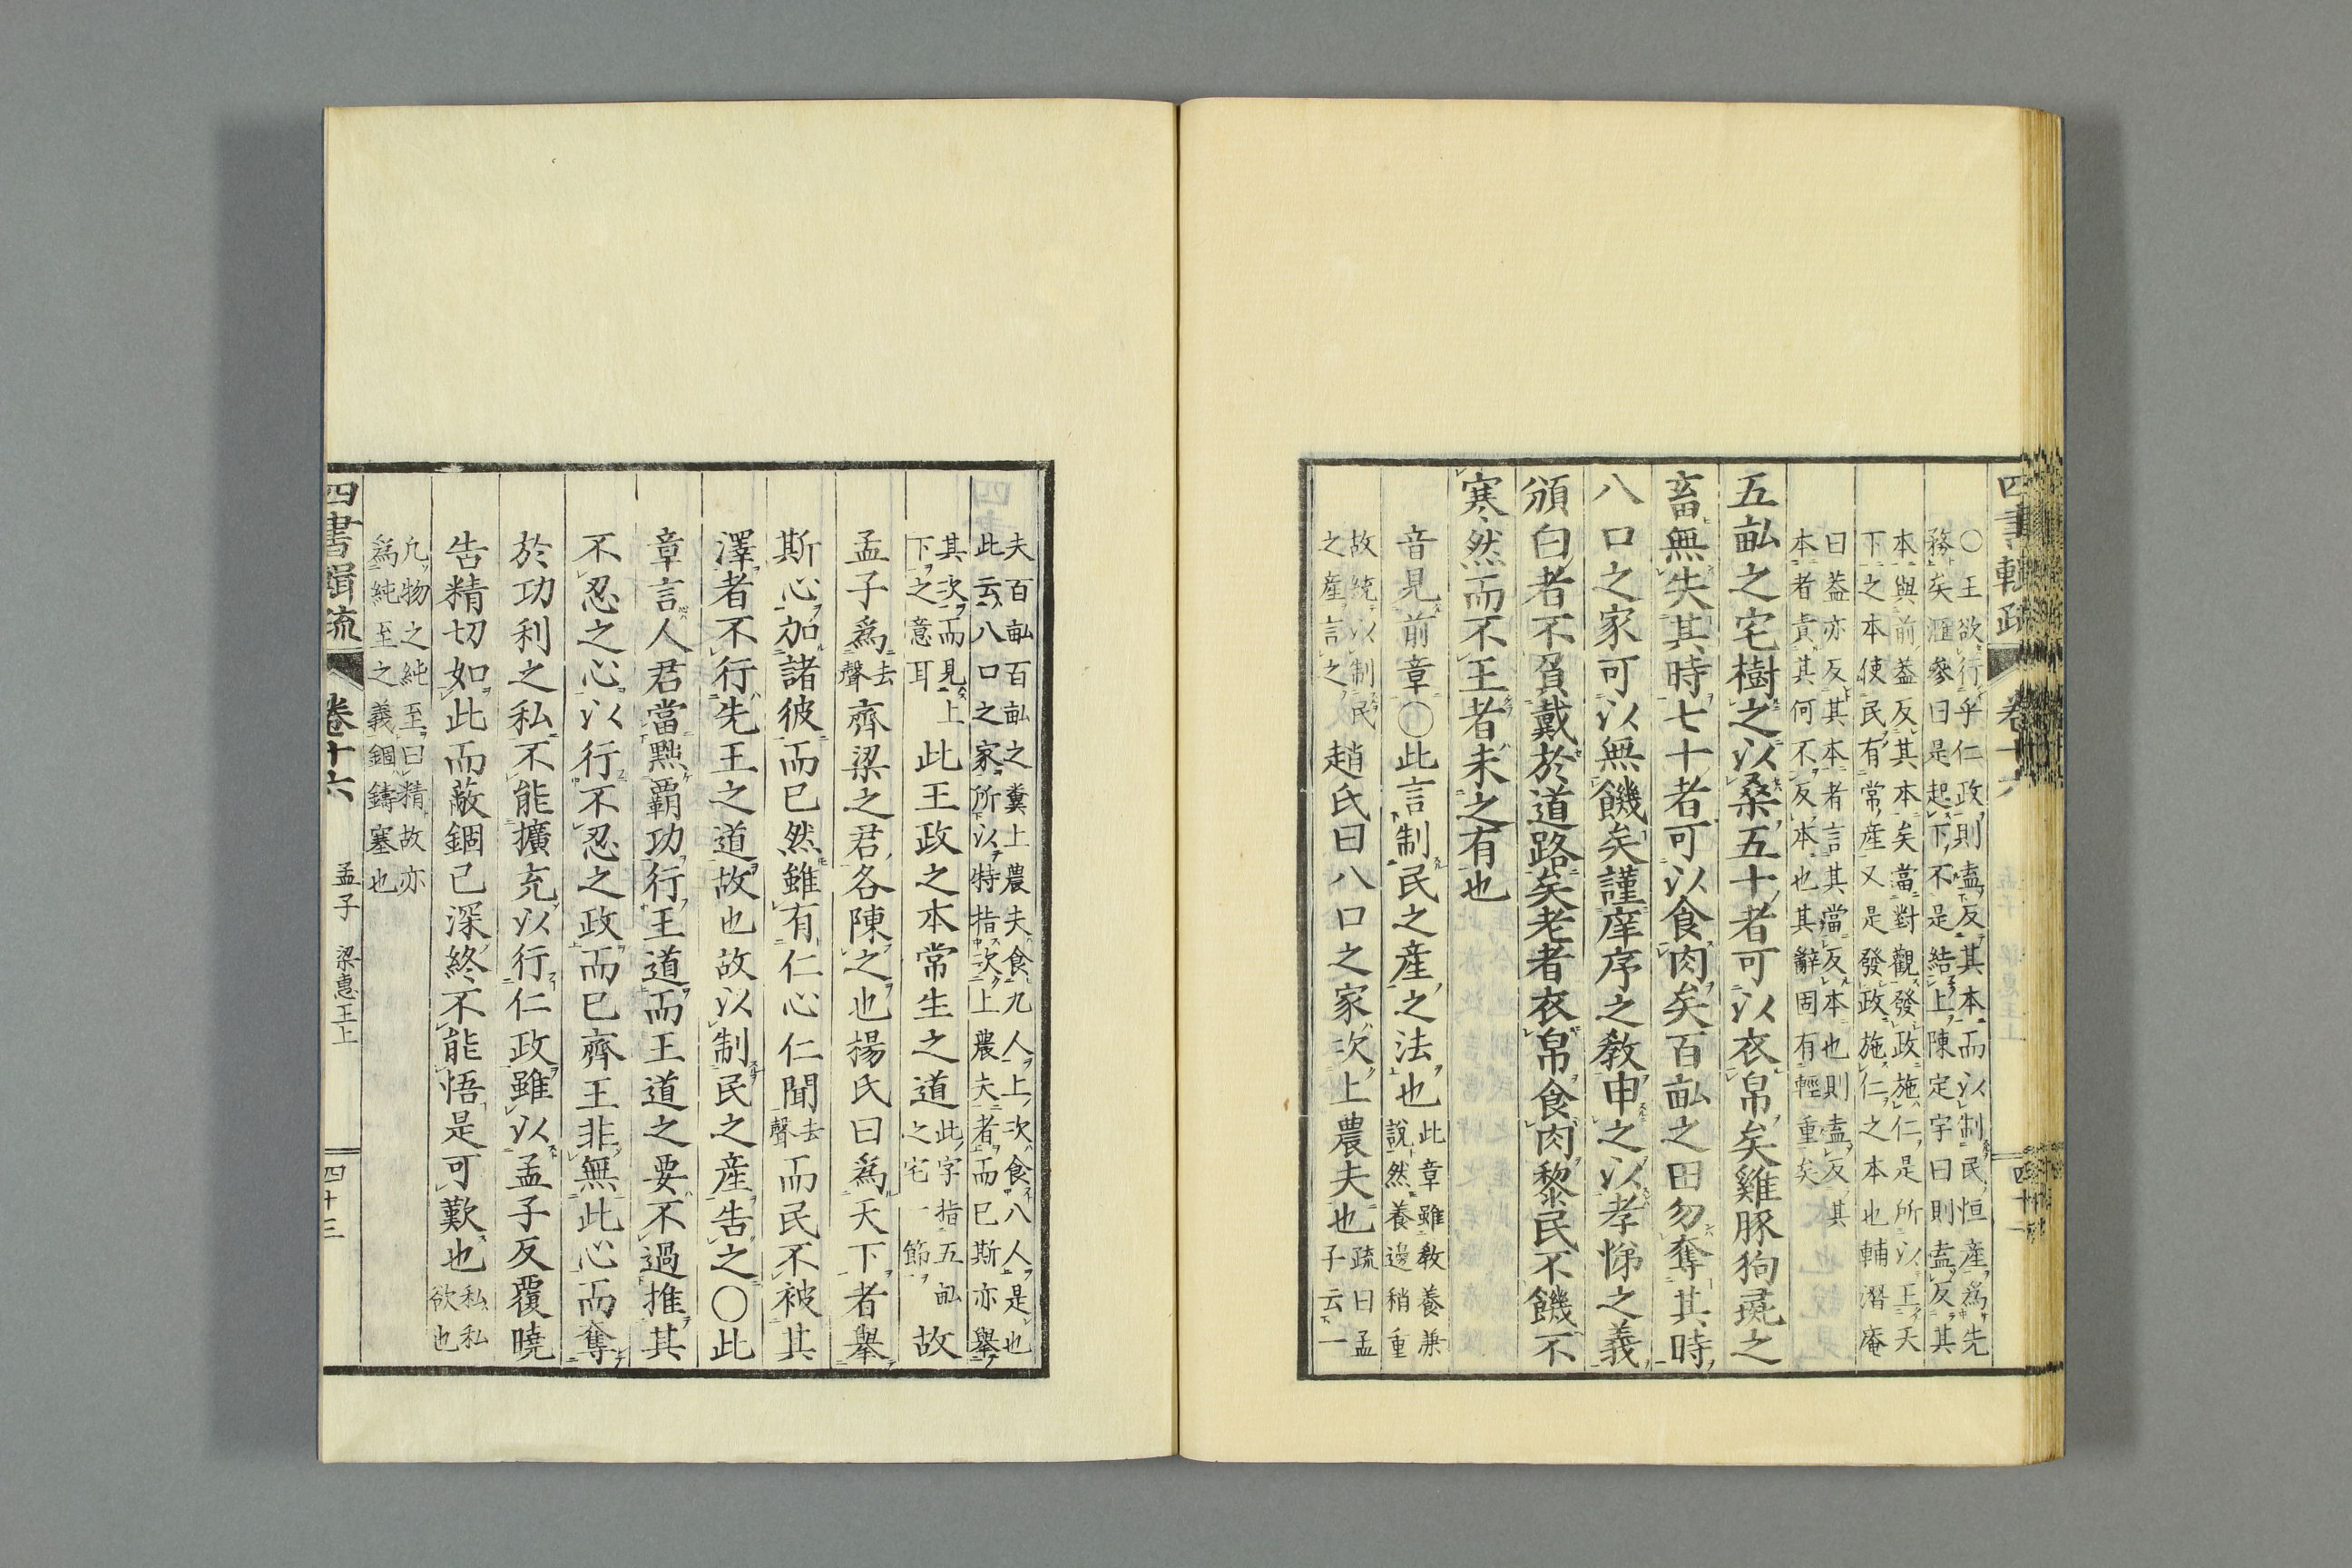 四書輯疏 卷十六
○王欲行乎仁政則盍反其本而以制民恒産爲先
務矣滙參曰是起下不是結上陳定宇曰則盍反其
本與前蓋反其本矣當對觀發政施仁是所以王天
下之本使民有常産又是發政施仁之本也輔潛庵
曰蓋亦反其本者言其當反本也則盍反其
本者責其何不反本也其辭固有輕重矣
五畝之宅樹之以桑五十者可以衣帛矣雞豚狗彘之
畜無失其時七十者可以食肉矣百畝之田勿奪其時
八口之家可以無饑矣謹庠序之敎申之以孝悌之義
頒白者不負戴於道路矣老者衣帛食肉黎民不饑不
寒然而不王者未之有也
音見前章○此言制民之産之法也
此章雖敎養兼
說然養邊稍重
故統以制民
之産言之
趙氏曰八口之家次上農夫也
疏曰孟
子云一
夫百畝百畝之糞上農夫食九人上次食八人是也
此云八口之家所以特指次上農夫者而已斯亦舉
其次而見上
下之意耳
此王政之本常生之道
此字指五畝
之宅一節
故
孟子爲
去
聲
齊梁之君各陳之也楊氏曰爲天下者舉
斯心加諸彼而已然雖有仁心仁聞
去
聲
而民不被其
澤者不行先王之道故也故以制民之産告之○此
章言人君當黜覇功行王道而王道之要不過推其
不忍之心以行不忍之政而已齊王非無此心而奪
於功利之私不能擴充以行仁政雖以孟子反覆曉
告精切如此而蔽錮已深終不能悟是可歎也
私私
欲也
凡物之純至曰精故亦
爲純至之義錮鑄塞也
四書輯疏 卷十六 孟子 梁惠王上 四十三